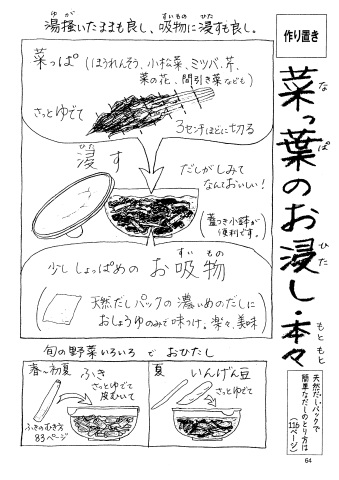 作り置き
菜っ葉のお浸し・本々
なっぱ
ひた
もともと
天然だし・パックで
簡単なだしのとり方は
(116ページ)
湯掻いたままも良し、吸物に浸すも良し。
ゆが
すいもの
ひた
菜っぱ(ほうれんそう、小松菜、ミツバ、芹、
菜の花、間引き菜なども)
さっとゆでて
3センチほどに切る
浸す
ひた
だしがしみて
なんておいしい!
(蓋つき小鉢が
便利です。)
少ししょっぱめのお吸物
すいもの
(天然だしパックの濃いめのだしに
おしょうゆのみで味つけ。楽々、美味)
旬の野菜いろいろでおひたし
春〜初夏 ふき
さっとゆでて
皮むいて
ふきのむき方
83ページ
夏 いんげん豆
さっとゆでて
64